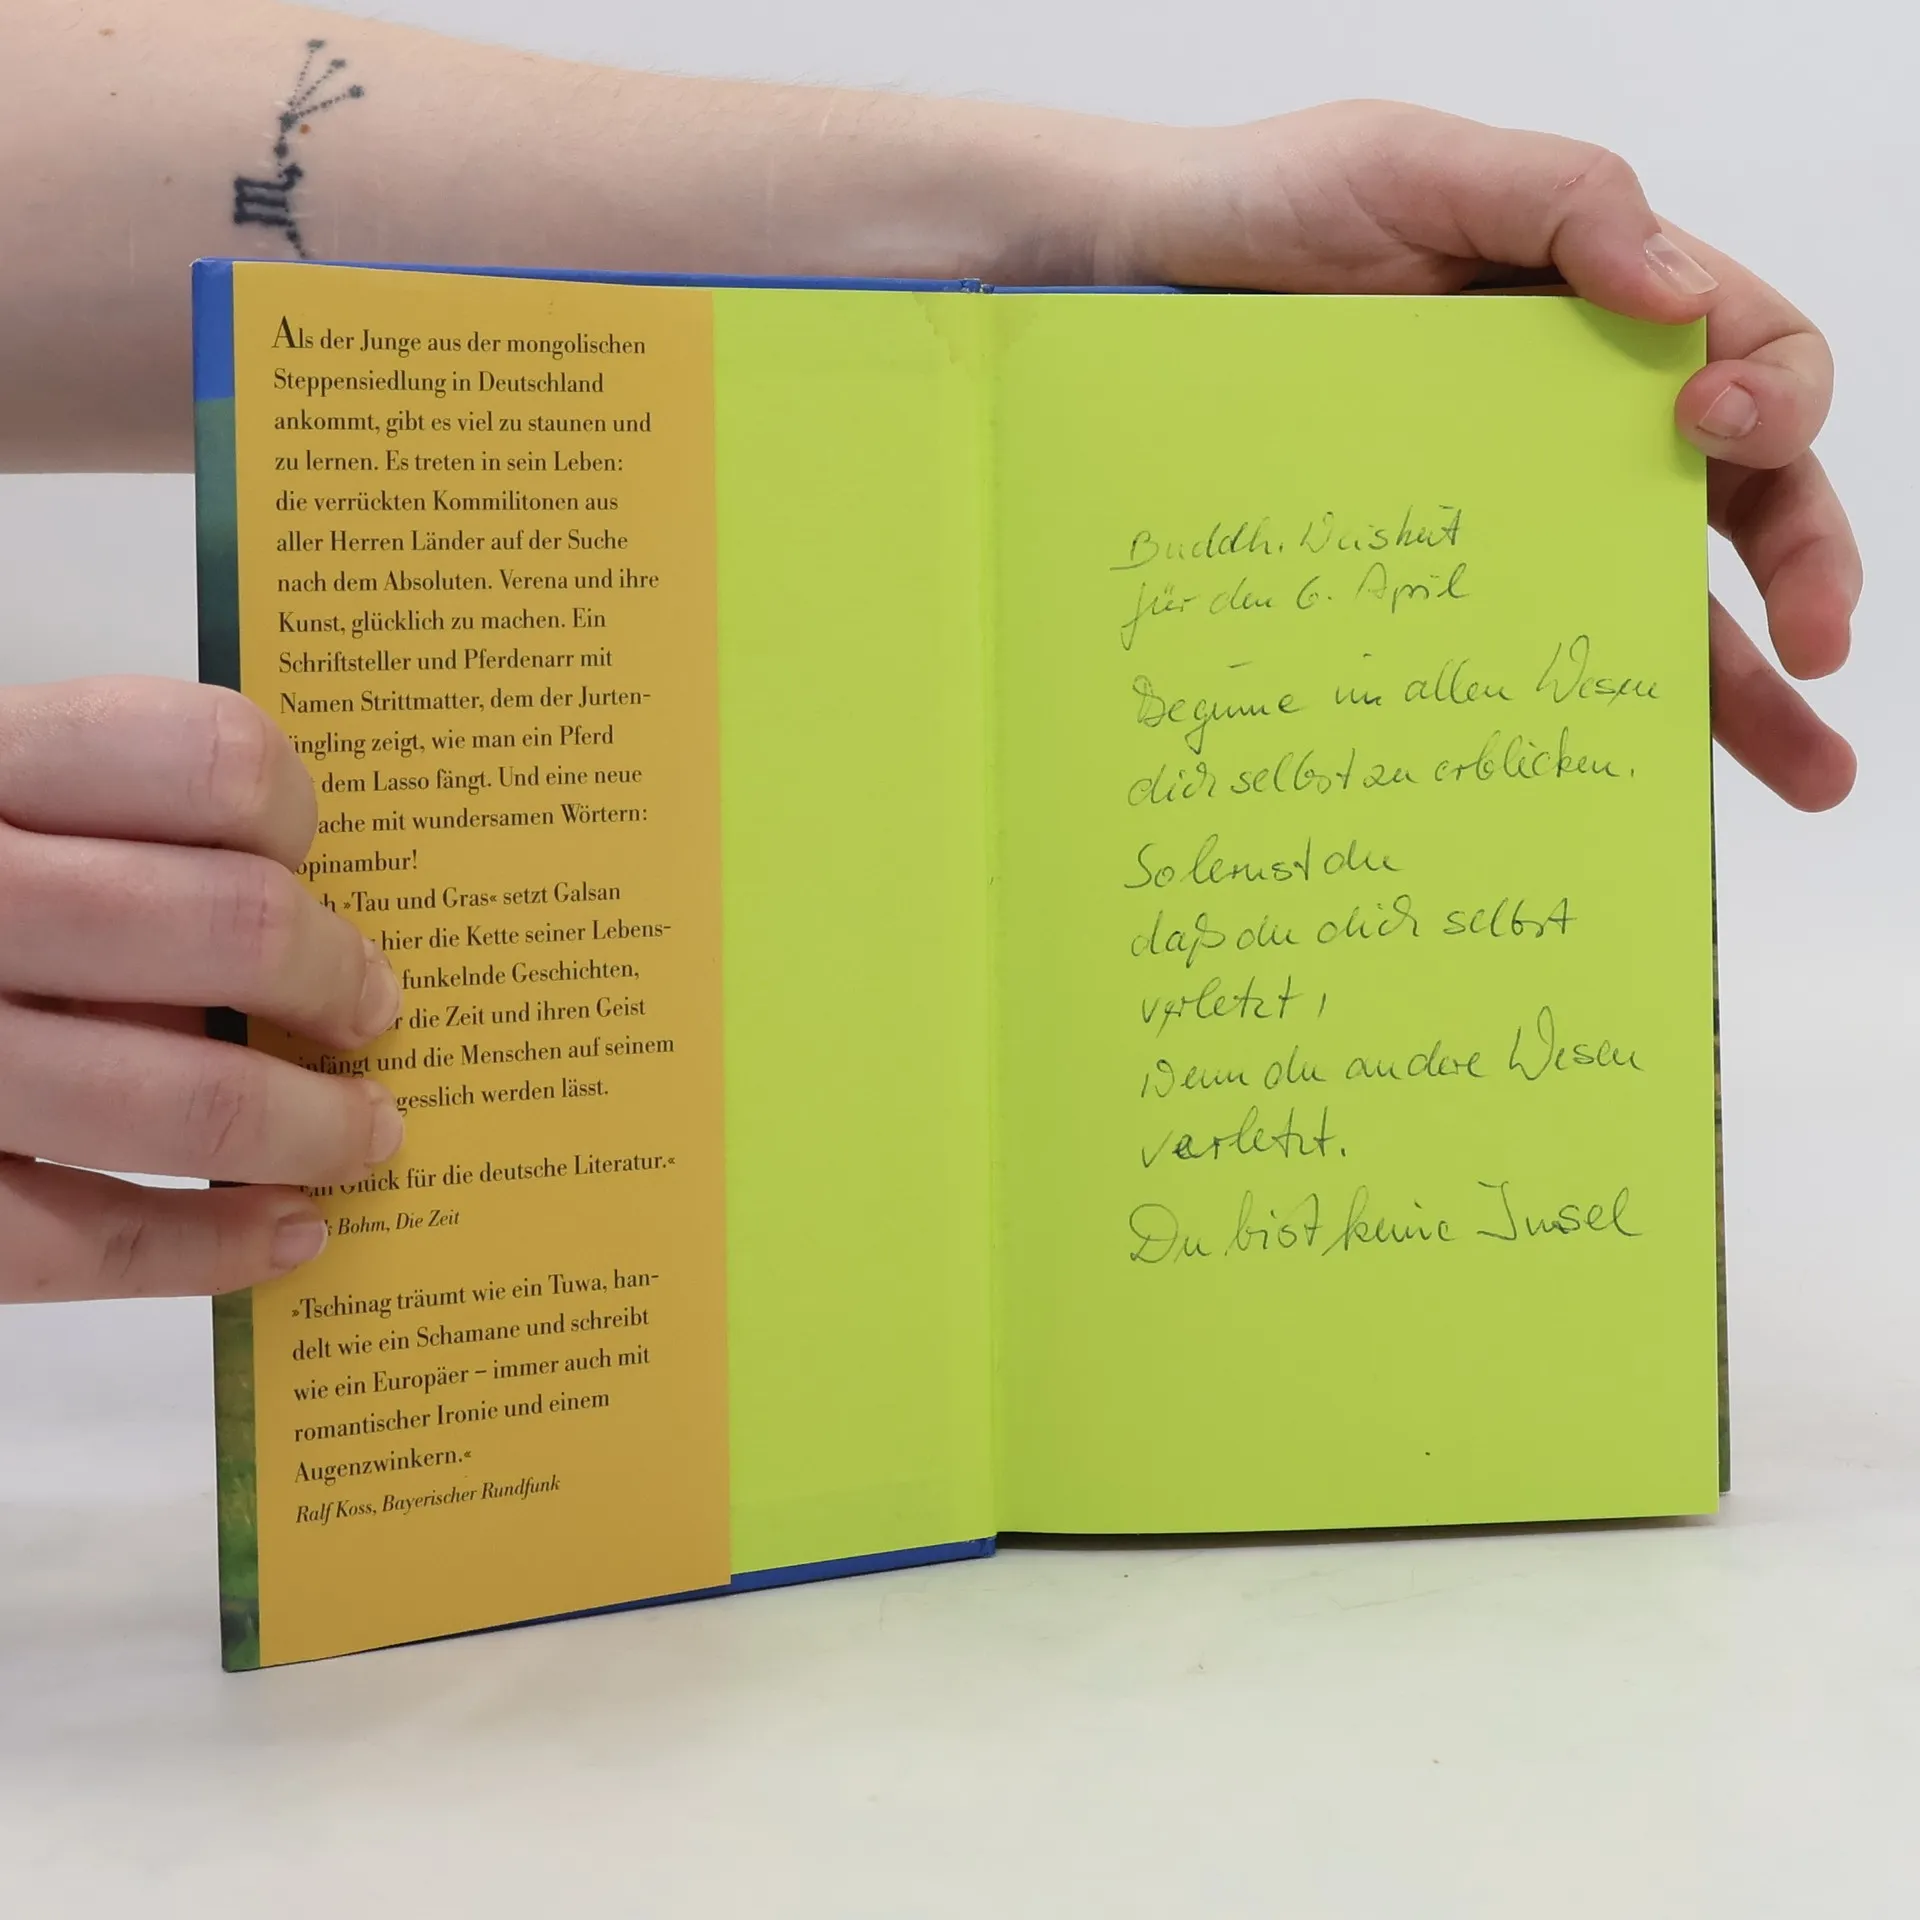 Als der Junge aus der mongolischen
Steppensiedlung in Deutschland
ankommt, gibt es viel zu staunen und
zu lernen. Es treten in sein Leben:
die verrückten Kommilitonen aus
aller Herren Länder auf der Suche
nach dem Absoluten. Verena und ihre
Kunst, glücklich zu machen. Ein
Schriftsteller und Pferdenarr mit
Namen Strittmatter, dem der Jurten-
üngling zeigt, wie man ein Pferd
dem Lasso fängt. Und eine neue
ache mit wundersamen Wörtern:
opinambur!
h »Tau und Gras« setzt Galsan
hier die Kette seiner Lebens-
funkelnde Geschichten,
r die Zeit und ihren Geist
infängt und die Menschen auf seinem
gesslich werden lässt.
Ein Glück für die deutsche Literatur.«
Bohm, Die Zeit
»Tschinag träumt wie ein Tuwa, han-
delt wie ein Schamane und schreibt
wie ein Europäer – immer auch mit
romantischer Ironie und einem
Augenzwinkern.«
Ralf Koss, Bayerischer Rundfunk
Buddh. Weisheit
für den 6. April
Beginne in allen Wesen
dich selbst zu erblicken.
So lernst du
daß du dich selbst
verletzt,
Wenn du andere Wesen
verletzt.
Du bist keine Insel